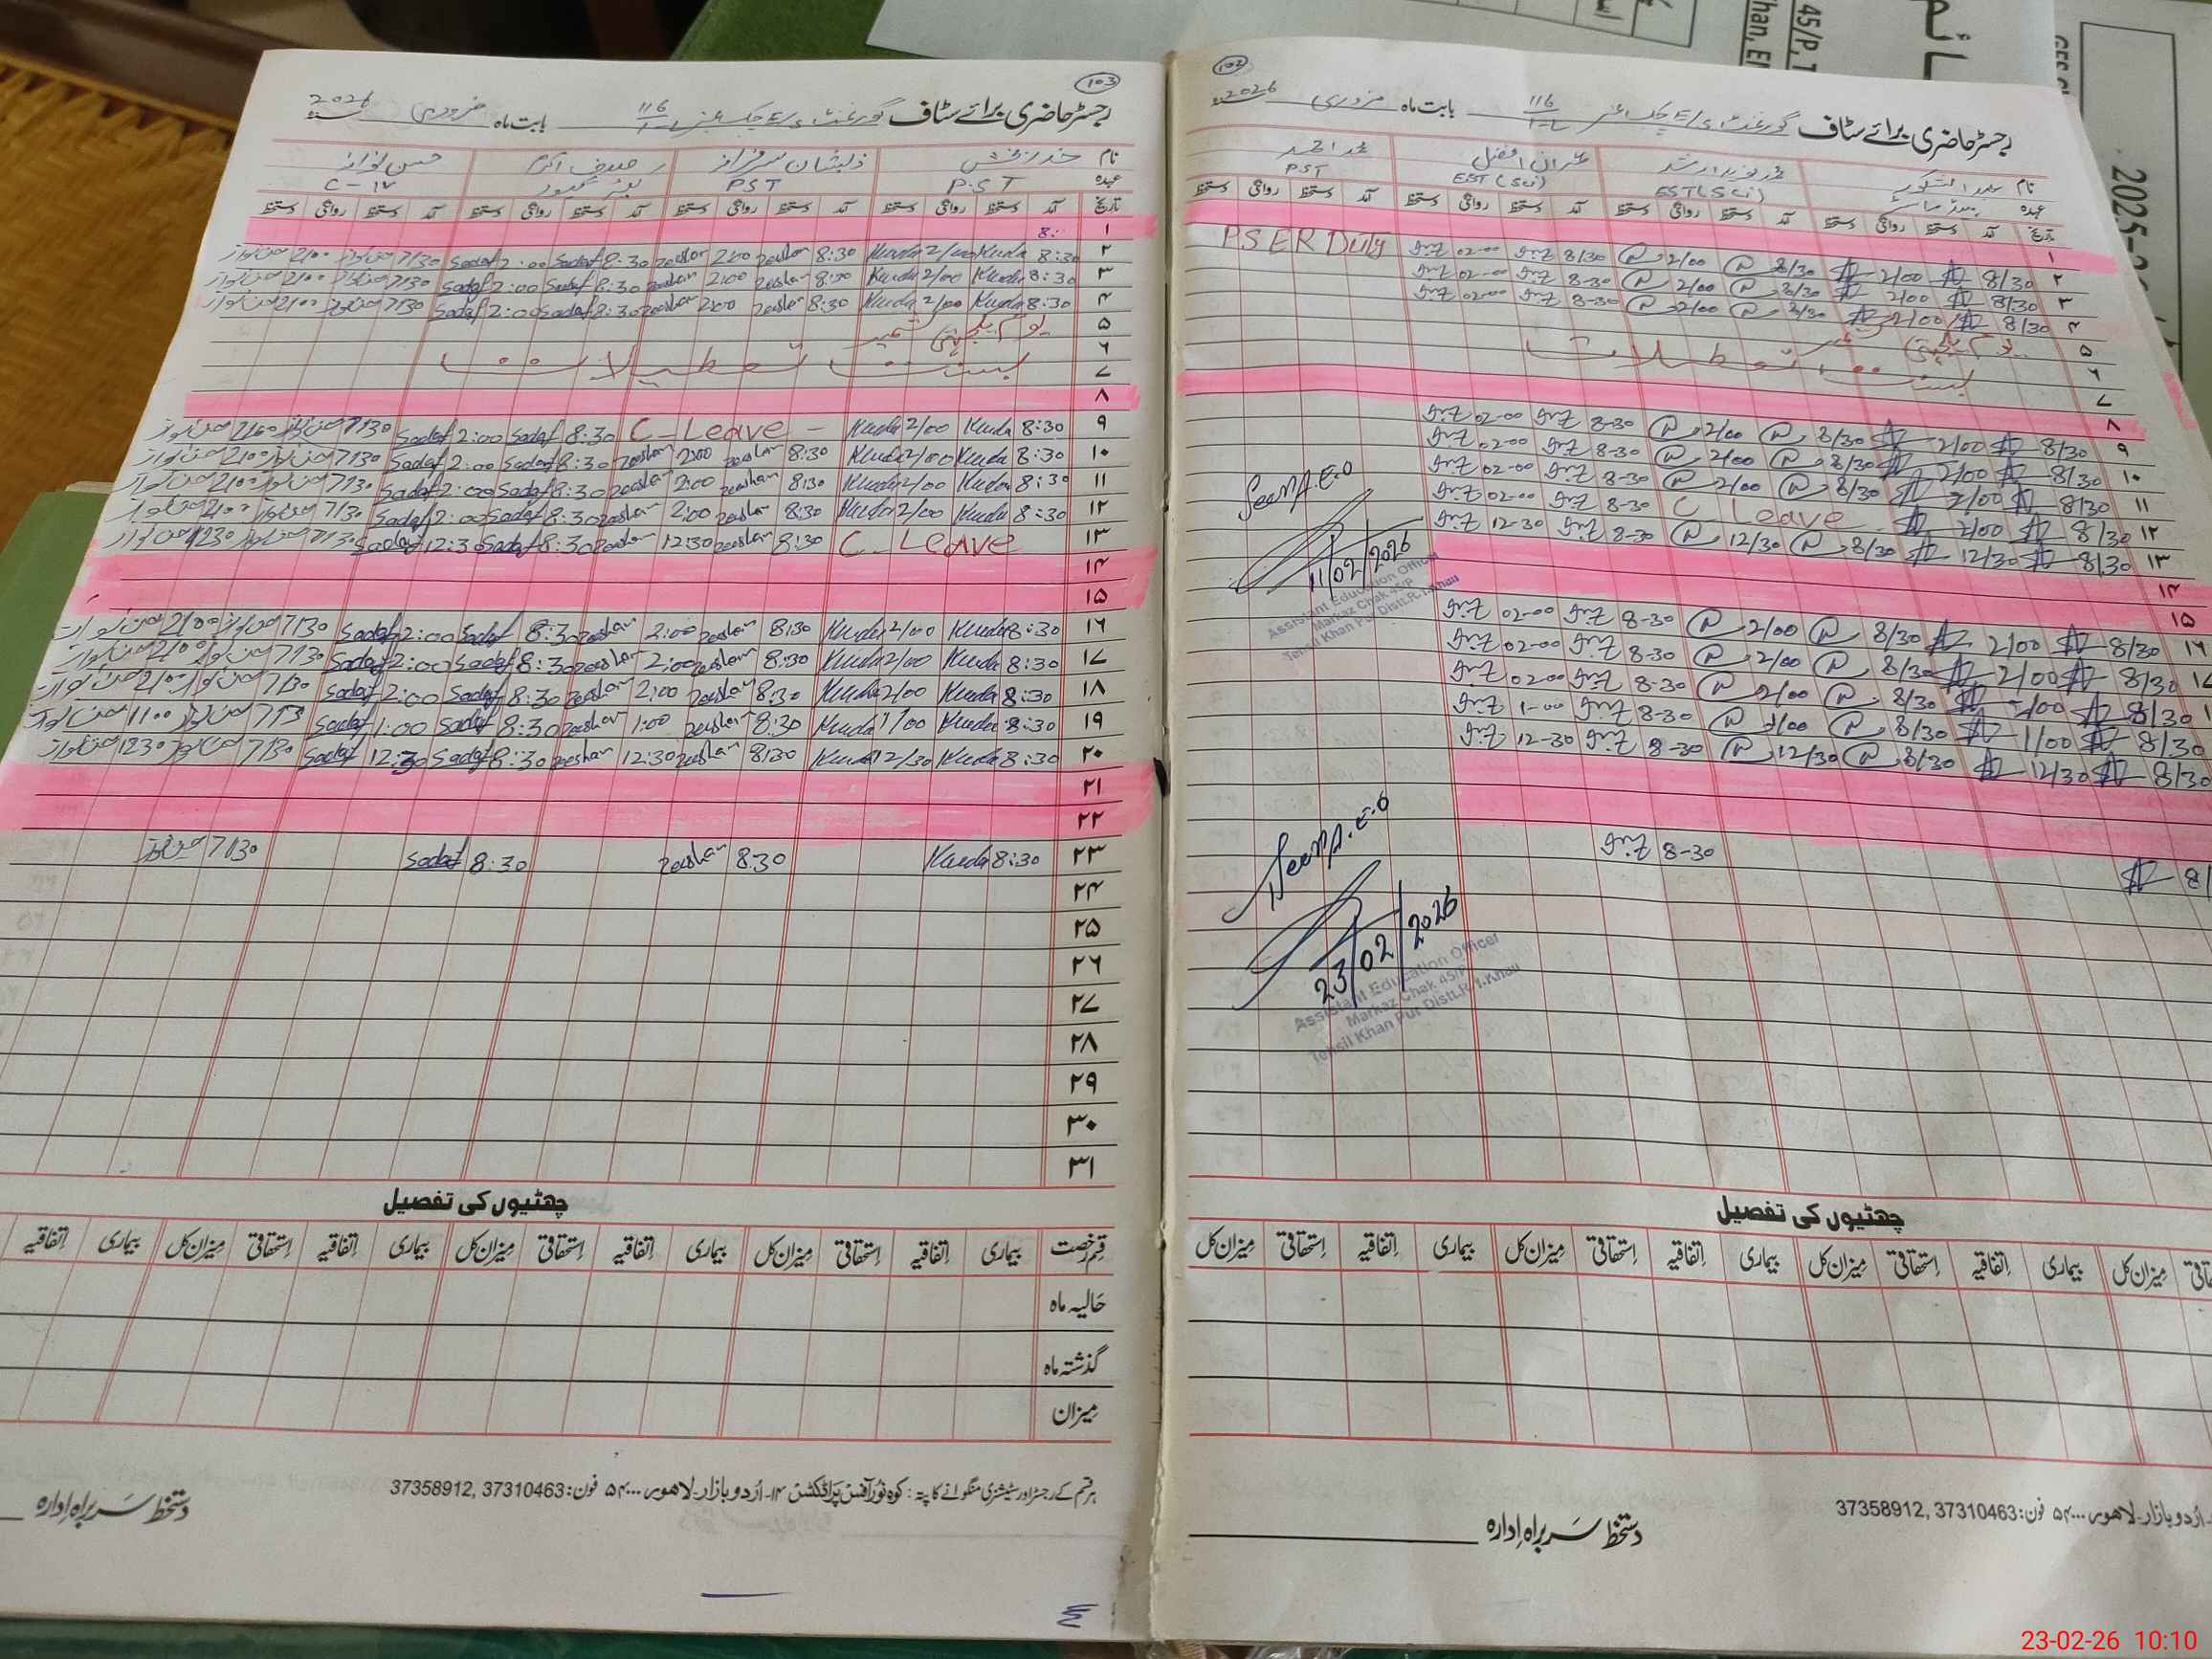 103
رجسٹر حاضری برائے سٹاف گورنمنٹ E/S چک نمبر 116 بابت ماہ فروری 2026
نام
ذیشان سرفراز
حسن نواز
عہدہ P.S.T PST C-IV
تاریخ آمد دستخط روانگی دستخط آمد دستخط روانگی دستخط آمد دستخط روانگی دستخط آمد دستخط روانگی دستخط
۱ 8:
۲ 8:30 Kuda 2/00 Kuda 8:30 zeeshan 2:00 zeeshan 8:30 Sadaf 2:00 Sadaf 7/30 حسن نواز 2/00 حسن نواز
۳ 8:30 Kuda 2/00 Kuda 8:30 zeeshan 2:00 zeeshan 8:30 Sadaf 2:00 Sadaf 7/30 حسن نواز 2/00 حسن نواز
۴ 8:30 Kuda 2/00 Kuda 8:30 zeeshan 2:00 zeeshan 8:30 Sadaf 2:00 Sadaf 7/30 حسن نواز 2/00 حسن نواز
۵ یوم یکجہتی کشمیر
۶ بسنت تعطیلات
۷
۸
۹ 8:30 Kuda 2/00 Kuda C-Leave - 8:30 Sadaf 2:00 Sadaf 7/30 حسن نواز 2/00 حسن نواز
۱۰ 8:30 Kuda 2/00 Kuda 8:30 zeeshan 2:00 zeeshan 8:30 Sadaf 2:00 Sadaf 7/30 حسن نواز 2/00 حسن نواز
۱۱ 8:30 Kuda 2/00 Kuda 8:30 zeeshan 2:00 zeeshan 8:30 Sadaf 2:00 Sadaf 7/30 حسن نواز 2/00 حسن نواز
۱۲ 8:30 Kuda 2/00 Kuda 8:30 zeeshan 2:00 zeeshan 8:30 Sadaf 2:00 Sadaf 7/30 حسن نواز 2/00 حسن نواز
۱۳ C-Leave 8:30 zeeshan 12:30 zeeshan 8:30 Sadaf 12:30 Sadaf 7/30 حسن نواز 12/30 حسن نواز
۱۴
۱۵
۱۶ 8:30 Kuda 2/00 Kuda 8:30 zeeshan 2:00 zeeshan 8:30 Sadaf 2:00 Sadaf 7/30 حسن نواز 2/00 حسن نواز
۱۷ 8:30 Kuda 2/00 Kuda 8:30 zeeshan 2:00 zeeshan 8:30 Sadaf 2:00 Sadaf 7/30 حسن نواز 2/00 حسن نواز
۱۸ 8:30 Kuda 2/00 Kuda 8:30 zeeshan 2:00 zeeshan 8:30 Sadaf 2:00 Sadaf 7/30 حسن نواز 2/00 حسن نواز
۱۹ 8:30 Kuda 1/00 Kuda 8:30 zeeshan 1:00 zeeshan 8:30 Sadaf 1:00 Sadaf 7/30 حسن نواز 1/00 حسن نواز
۲۰ 8:30 Kuda 12/30 Kuda 8:30 zeeshan 12:30 zeeshan 8:30 Sadaf 12:30 Sadaf 7/30 حسن نواز 12:30 حسن نواز
۲۱
۲۲
۲۳ 8:30 Kuda 8:30 zeeshan 8:30 Sadaf 7/30 حسن نواز
۲۴
۲۵
۲۶
۲۷
۲۸
۲۹
۳۰
۳۱
چھٹیوں کی تفصیل
قسم رخصت بیماری اتفاقیہ استحقاقی میزان کل بیماری اتفاقیہ استحقاقی میزان کل بیماری اتفاقیہ استحقاقی میزان کل بیماری اتفاقیہ
حالیہ ماہ
گذشتہ ماہ
میزان
ہر قسم کے رجسٹر اور سٹیشنری منگوانے کا پتہ: کوہ نور آفس پراڈکٹس ۱۴- اُردو بازار لاہور ۵۴۰۰۰ فون: 37310463, 37358912
دستخط سربراہ ادارہ
102
رجسٹر حاضری برائے سٹاف گورنمنٹ E/S چک نمبر 116 بابت ماہ فروری 2026
نام
عمران افضل
عہدہ ہیڈ ماسٹر EST (Sci) EST (Sci) PST
تاریخ آمد دستخط روانگی دستخط آمد دستخط روانگی دستخط آمد دستخط روانگی دستخط آمد دستخط روانگی دستخط
۱
۲ 8/30 2/00 8/30 2/00 8/30 02-00 PSER Duty
۳ 8/30 2/00 8/30 2/00 8-30 02-00
۴ 8/30 2/00 8/30 2/00 8-30 02-00
۵ یوم یکجہتی کشمیر
۶ بسنت تعطیلات
۷
۸
۹ 8/30 2/00 8/30 2/00 8-30 02-00
۱۰ 8/30 2/00 8/30 2/00 8-30 02-00
۱۱ 8/30 2/00 8/30 2/00 8-30 02-00
۱۲ 8/30 2/00 C Leave 8-30 02-00
۱۳ 8/30 12/30 8/30 12/30 8-30 12-30
۱۴
۱۵
۱۶ 8/30 2/00 8/30 2/00 8-30 02-00
8/30 2/00 8/30 2/00 8-30 02-00
8/30 2/00 8/30 2/00 8-30 02-00
8/30 1/00 8/30 1/00 8-30 1-00
8/30 12/30 8/30 12/30 8-30 12-30
8-30
Seen A.E.O
11/02/2026
Assistant Education Officer
Markaz Chak 45/P
Tehsil Khan Pur Distt.R.Y.Khan
Seen A.E.O
23/02/2026
Assistant Education Officer
Markaz Chak 45/P
Tehsil Khan Pur Distt.R.Y.Khan
چھٹیوں کی تفصیل
میزان کل بیماری اتفاقیہ استحقاقی میزان کل بیماری اتفاقیہ استحقاقی میزان کل بیماری اتفاقیہ استحقاقی میزان کل
اُردو بازار لاہور ۵۴۰۰۰ فون: 37310463, 37358912
دستخط سربراہ ادارہ
45/P, T
han,
2025-2
23-02-26 10:10